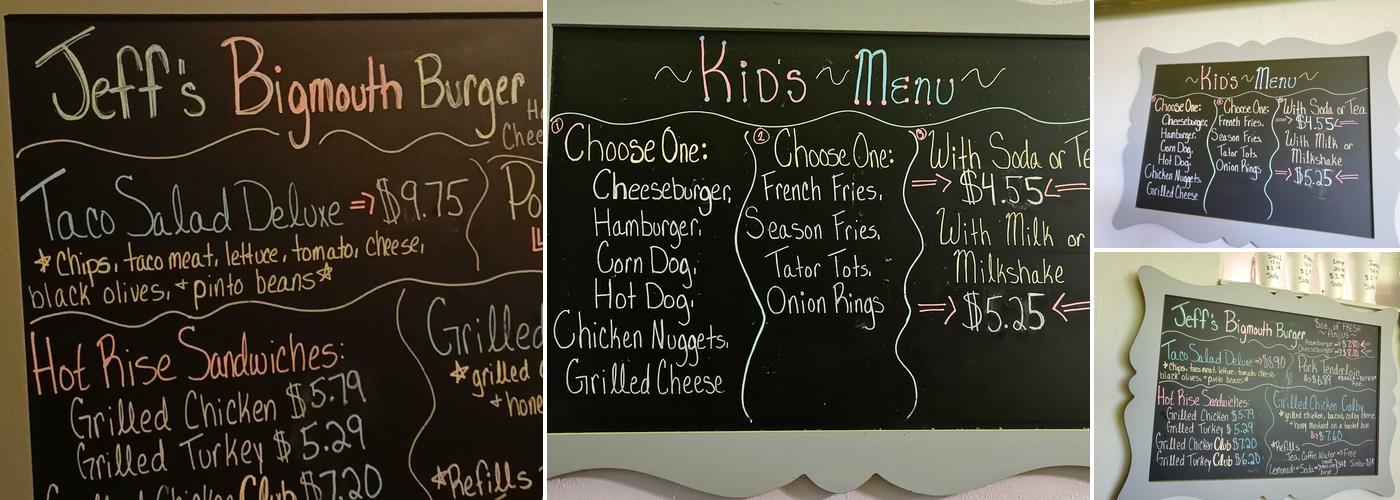 Jeff's Bigmouth Burger
Taco Salad Deluxe ⇒ $9.75
*Chips, taco meat, lettuce, tomato, cheese,
black olives, + pinto beans*
Hot Rise Sandwiches:
Grilled Chicken $5.79
Grilled Turkey $5.29
Club $7.20
Grilled
*grilled
*Refills
~ Kid's ~ Menu ~
① Choose One:
Cheeseburger,
Hamburger,
Corn Dog,
Hot Dog,
Chicken Nuggets,
Grilled Cheese
② Choose One:
French Fries,
Season Fries,
Tator Tots,
Onion Rings
③ With Soda or Te
⇒ $4.55 ⇐
With Milk or
Milkshake
⇒ $5.25 ⇐
~Kid's~Menu~
Choose One:
Cheeseburger,
Hamburger,
Corn Dog,
Hot Dog,
Chicken Nuggets,
Grilled Cheese
② Choose One:
French Fries,
Season Fries,
Tator Tots,
Onion Rings
③ With Soda or Tea
⇒ $4.55 ⇐
With Milk or
Milkshake
⇒ $5.25 ⇐
Jeff's Bigmouth Burger
5oz. of FRESH
Hamburger
Cheeseburger
Taco Salad Deluxe ⇒ $8.90
*Chips, taco meat, lettuce, tomato, cheese
black olives, + pinto beans*
Pork Tenderloin
$6.89
Hot Rise Sandwiches:
Grilled Chicken $5.79
Grilled Turkey $5.29
Grilled Chicken Club $7.20
Grilled Turkey Club $6.20
Grilled Chicken Colby
*grilled chicken, bacon, colby cheese,
+ honey mustard on a toasted bun
$7.60
*Refills
Tea, Coffee, Water ⇒ Free
Lemonade + Soda